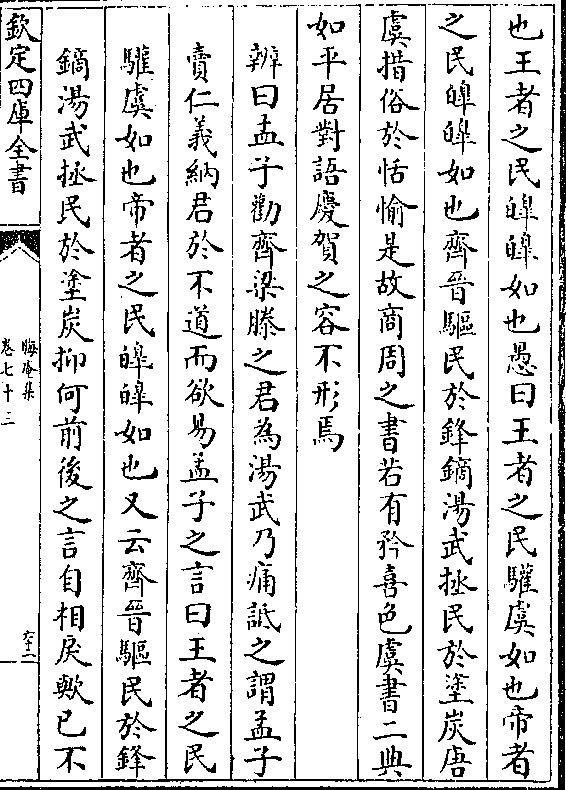 也王者之民皡皡如也愚曰王者之民驩虞如也帝者
之民皡皡如也齊晉驅民於鋒鏑湯武拯民於塗炭唐
虞措俗於恬愉是故商周之書若有矜喜色虞書二典
如平居對語慶賀之容不形焉
辨曰孟子勸齊梁滕之君為湯武乃痛詆之謂孟子
賣仁義納君於不道而欲易孟子之言曰王者之民
驩虞如也帝者之民皡皡如也又云齊晉驅民於鋒
鏑湯武拯民於塗炭抑何前後之言自相戾歟已不
欽定四庫全書
晦庵集
卷七十三